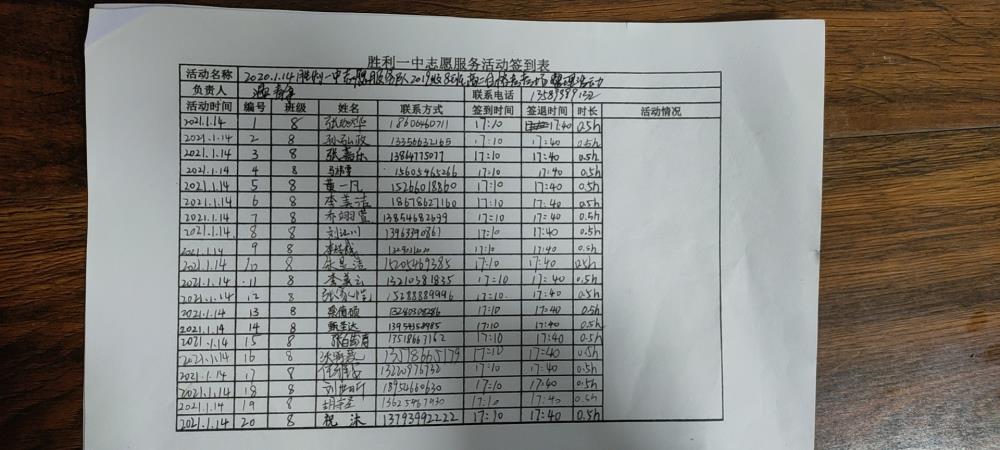 胜利一中志愿服务活动签到表
活动名称 2020.1.14胜利一中志愿服务队2019级8班 活动
负责人 联系电话
活动时间 编号 班级 姓名 联系方式 签到时间 签退时间 时长 活动情况
2021.1.14 1 8 18606460711 17:10 17:40 0.5h
2021.1.14 2 8 孙弘政 13356632165 17:10 17:40 0.5h
2021.1.14 3 8 张嘉乐 13864775077 17:10 17:40 0.5h
2021.1.14 4 8 15605465266 17:10 17:40 0.5h
2021.1.14 5 8 黄一凡 15266018860 17:10 17:40 0.5h
2021.1.14 6 8 李美洁 18678627160 17:10 17:40 0.5h
2021.1.14 7 8 乔翊萱 13854682699 17:10 17:40 0.5h
2021.1.14 8 8 刘江川 13963390861 17:10 17:40 0.5h
2021.1.14 9 8 17:10 17:40 0.5h
2021.1.14 10 8 15205469385 17:10 17:40 0.5h
2021.1.14 11 8 李美云 13210381835 17:10 17:40 0.5h
2021.1.14 12 8 15288889996 17:10 17:40 0.5h
2021.1.14 13 8 13240308286 17:10 17:40 0.5h
2021.1.14 14 8 17:10 17:40 0.5h
2021.1.14 15 8 13518667162 17:10 17:40 0.5h
2021.1.14 16 8 13518665179 17:10 17:40 0.5h
2021.1.14 17 8 13220976732 17:10 17:40 0.5h
2021.1.14 18 8 18954660630 17:10 17:40 0.5h
2021.1.14 19 8 13625467930 17:10 17:40 0.5h
2021.1.14 20 8 祝沫 13793992222 17:10 17:40 0.5h